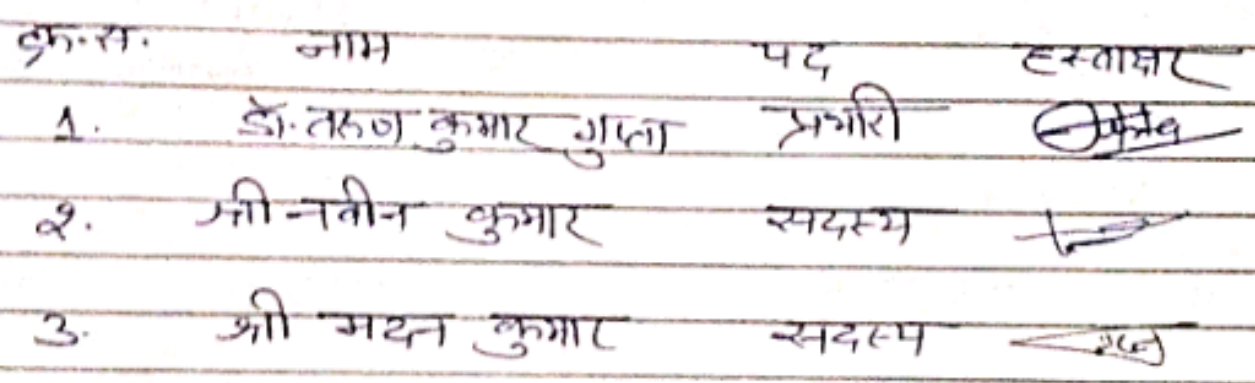 क्र.स. नाम पद हस्ताक्षर
1. डॉ. तरुण कुमार गुप्ता प्रभारी
2. श्री नवीन कुमार सदस्य
3. श्री मदन कुमार सदस्य